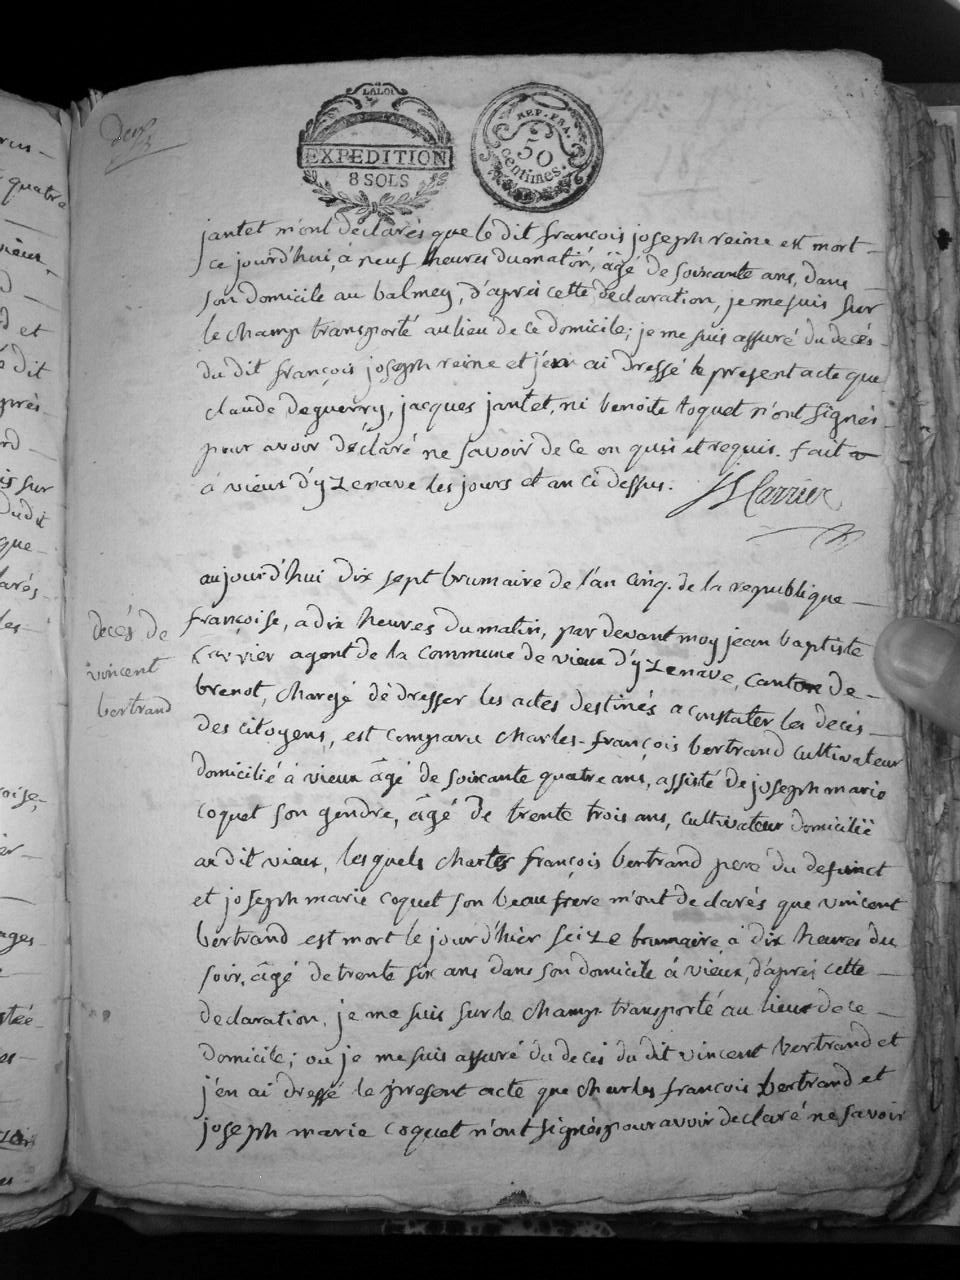 deux
LA LOI
EXPEDITION
8 SOLS
REP. FRA.
50
centimes.
jantet m'ont déclarés que le dit françois joseph reine est mort
ce jourd'hui, à neuf heures du matin, âgé de soixante ans, dans
son domicile au balmey, d'après cette declaration, je me suis sur
le champ transporté au lieu de ce domicile; je me suis assuré du decés
du dit françois joseph reine et j'en ai dressé le present acte que
claude deguerry, jacques jantet, ni benoite toquet n'ont signés
pour avoir déclaré ne savoir de ce en quis et requis. fait
à vieux d'yzenave les jours et an ci dessus. JB Carrier
aujourd'hui dix sept brumaire de l'an cinq. de la republique
françoise, a dix heures du matin, par devant moy jean baptiste
Carrier agent de la commune de vieux d'yzenave, canton de
brenot, chargé dé dresser les actes destinés a constater les decés
des citoyens, est comparu charles-françois bertrand cultivateur
domicilié à vieux âgé de soixante quatre ans, assisté de joseph marie
coquet son gendre, âgé de trente trois ans, cultivateur domicilié
au dit vieux, lesquels charles françois bertrand pere du defunct
et joseph marie coquet son beau frere m'ont declarés que vincent
bertrand est mort le jour d'hier seize brumaire à dix heures du
soir, âgé de trente six ans dans son domicile à vieux, d'après cette
declaration, je me suis sur le champ transporté au lieux de ce
domicile; ou je me suis assuré du decés du dit vincent bertrand et
j'en ai dressé le present acte que charles françois bertrand et
joseph marie coquet n'ont signés pour avoir declaré ne savoir
decés de
vincent
bertrand